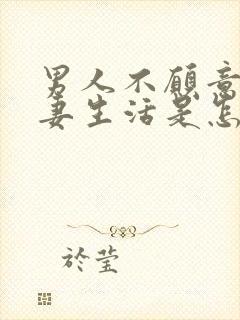 男人不愿意
妻生活是怎
於莹